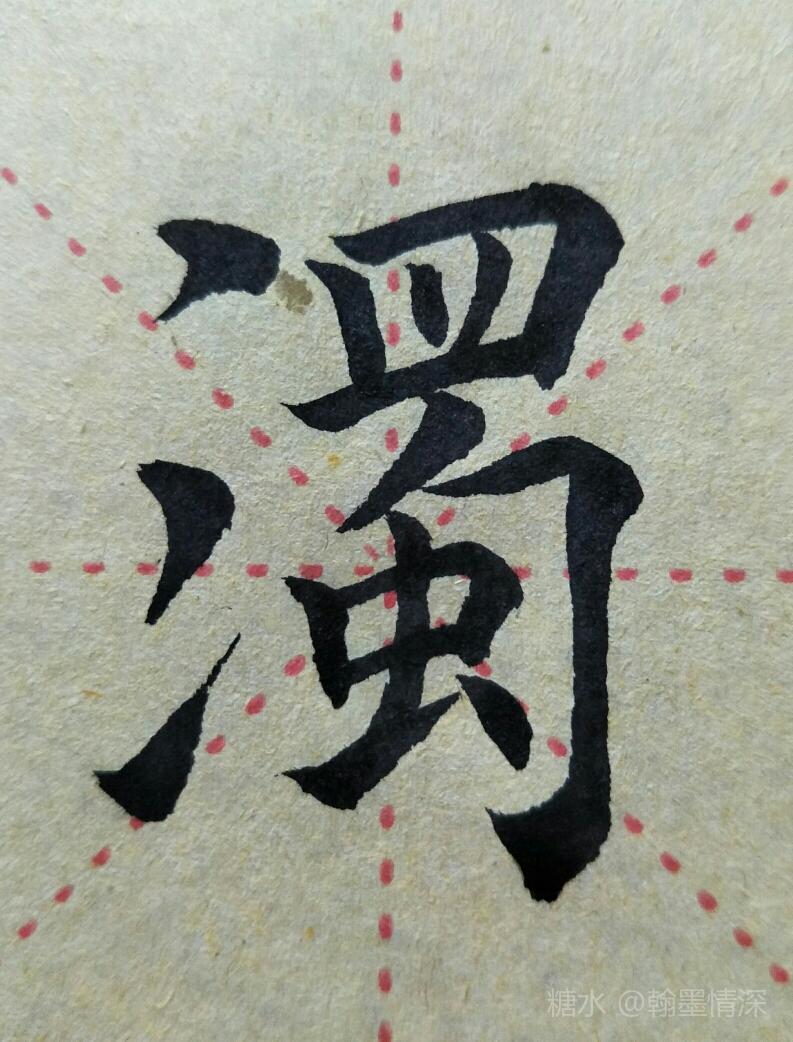 濁
糖水 @翰墨情深